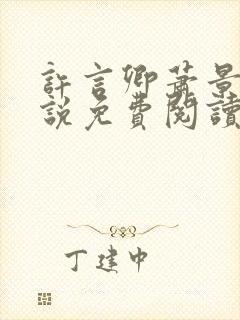 許言卿蕭景
說免費閱讀
丁建中